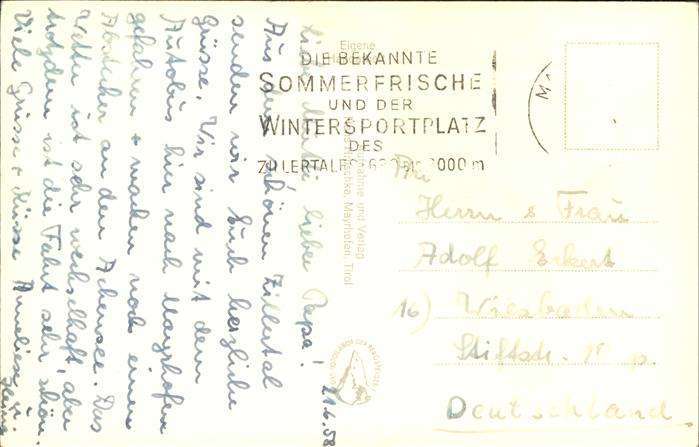 21.6.58
Liebe Mutti, lieber Papa!
Aus dem schönen Zillertal
senden wir Euch herzliche
Grüsse. Wir sind mit dem
Autobus hier nach Mayrhofen
gefahren + machen noch einen
Abstecher an den Achensee. Das
Wetter ist sehr wechselhaft, aber
trotzdem ist die Fahrt sehr schön.
Viele Grüsse + Küsse Anneliese u.
Heinz
Eigene
Aufnahme und Verlag
Mayrhofen, Tirol
DIE BEKANNTE
SOMMERFRISCHE
UND DER
WINTERSPORTPLATZ
DES
ZILLERTALES 630 BIS 3000 m
M
An
Herrn & Frau
Adolf Eckert
16) Wiesbaden
Stiftstr. p.
Deutschland